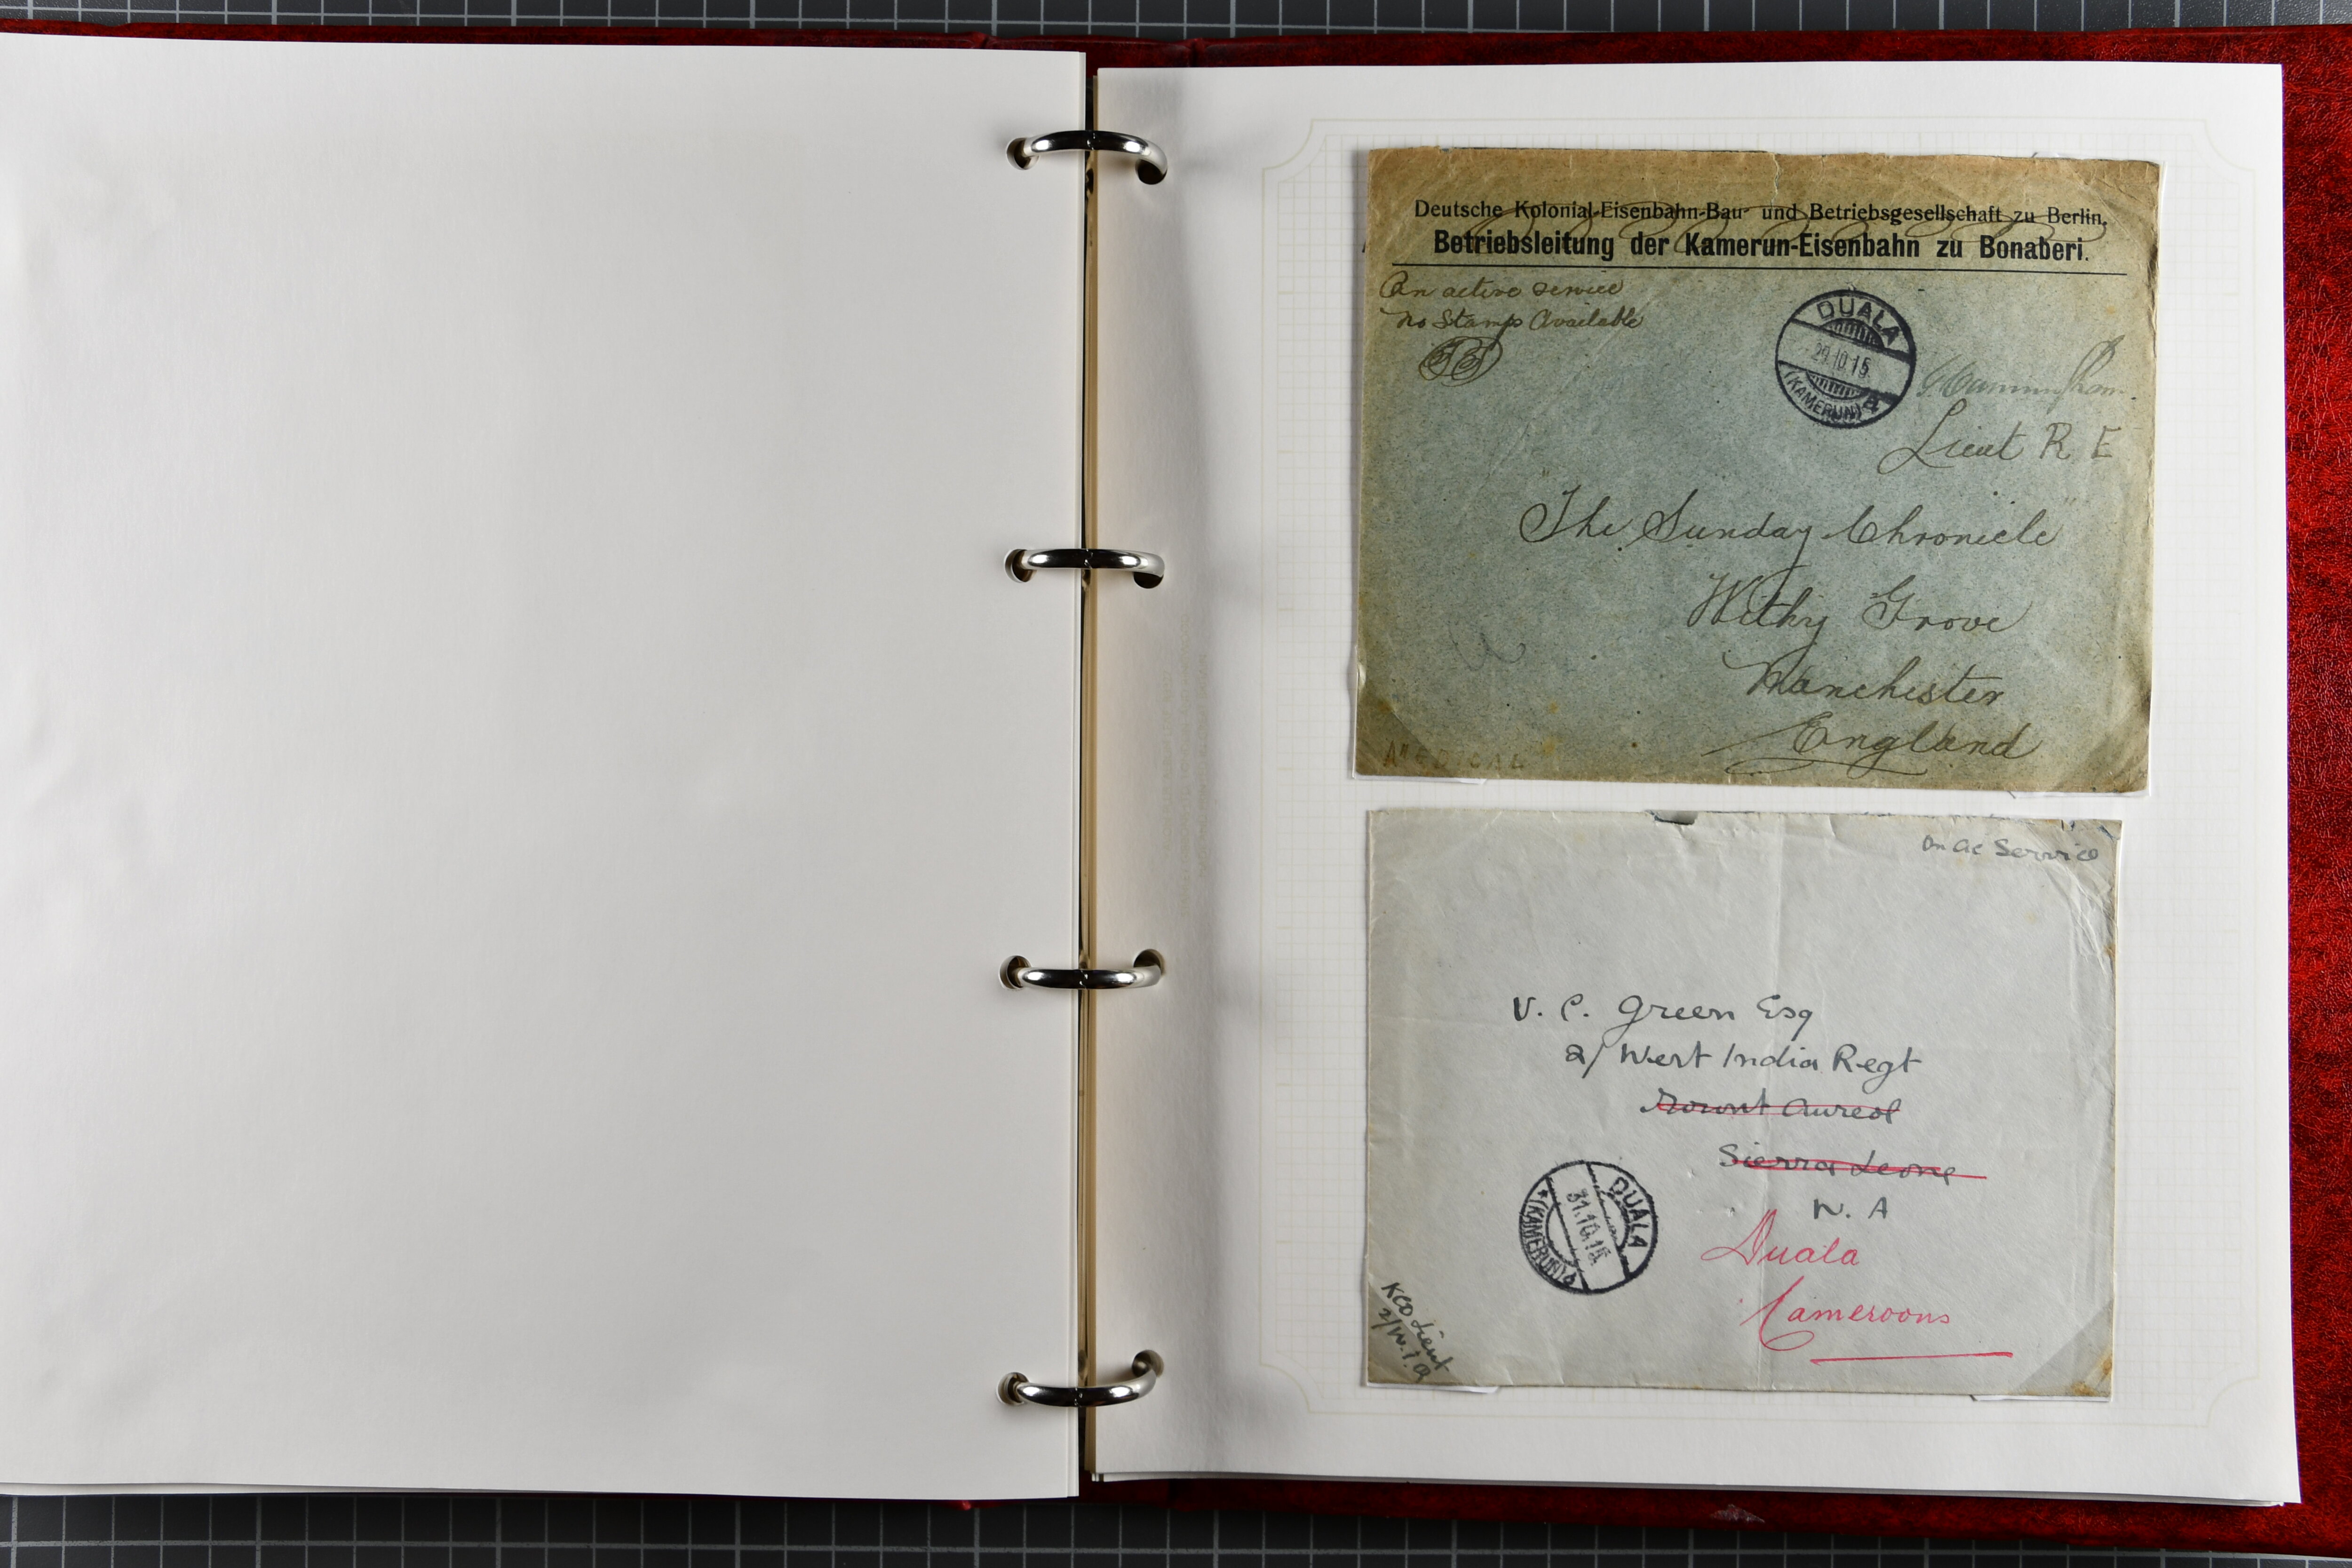 Deutsche Kolonial-Eisenbahn-Bau- und Betriebsgesellschaft zu Berlin.
Betriebsleitung der Kamerun-Eisenbahn zu Bonaberi.
On active service
No Stamp Available
DUALA
29.10.15
(KAMERUN) a
Lieut R E
"The Sunday Chronicle"
Withy Grove
Manchester
England
MEDICAL
On ac Service
V. C. Green Esq
2/ West India Regt
Mount Aureol
Sierra Leone
W. A
DUALA
31.10.15
*(KAMERUN) b
Duala
Cameroons
Lieut
2/W.I.R